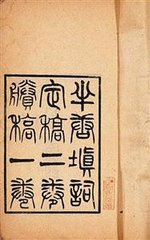 半唐填詞
定稿二卷
賸稿一卷